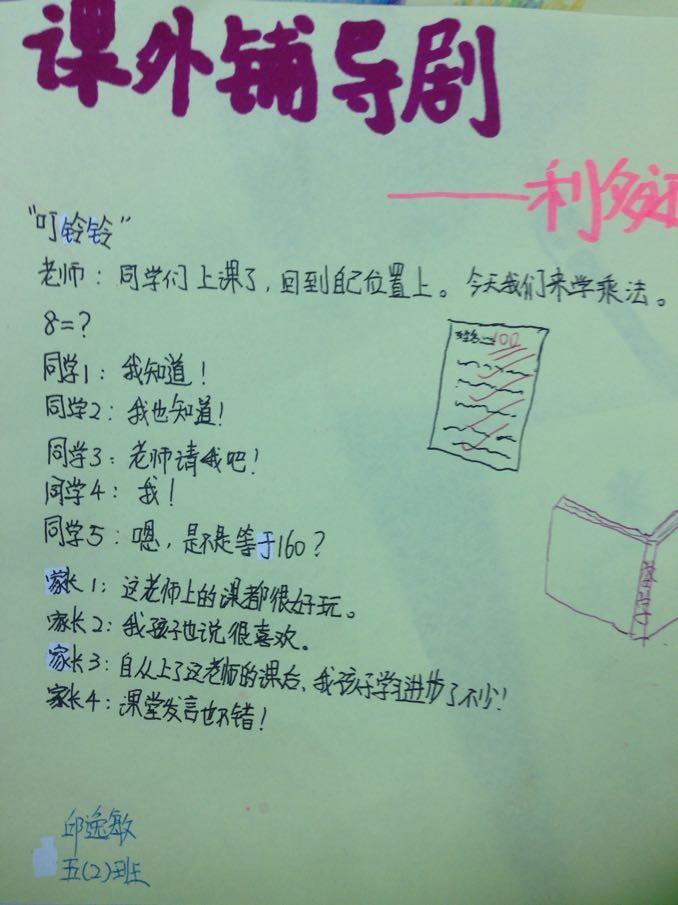 课外铺导剧
——利多
"叮铃铃"
老师：同学们上课了，回到自己位置上。今天我们来学乘法。
8=？
同学1：我知道！
同学2：我也知道！
同学3：老师请我吧！
同学4：我！
同学5：嗯，是不是等于160？
家长1：这老师上的课都很好玩。
家长2：我孩子也说很喜欢。
家长3：自从上了这老师的课后、我孩子学习进步了不少！
家长4：课堂发言也不错！
100
邱逸敏
五(2)班